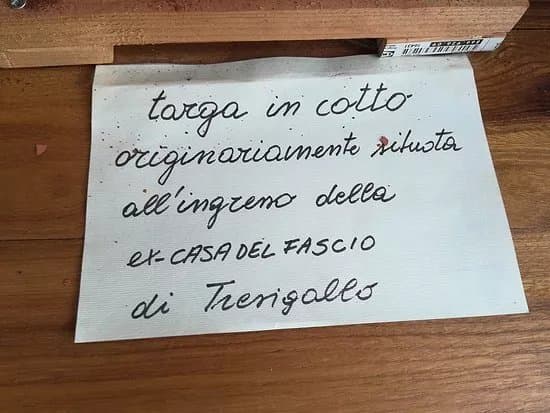 targa in cotto
originariamente situata
all'ingresso della
ex-CASA DEL FASCIO
di Tresigallo